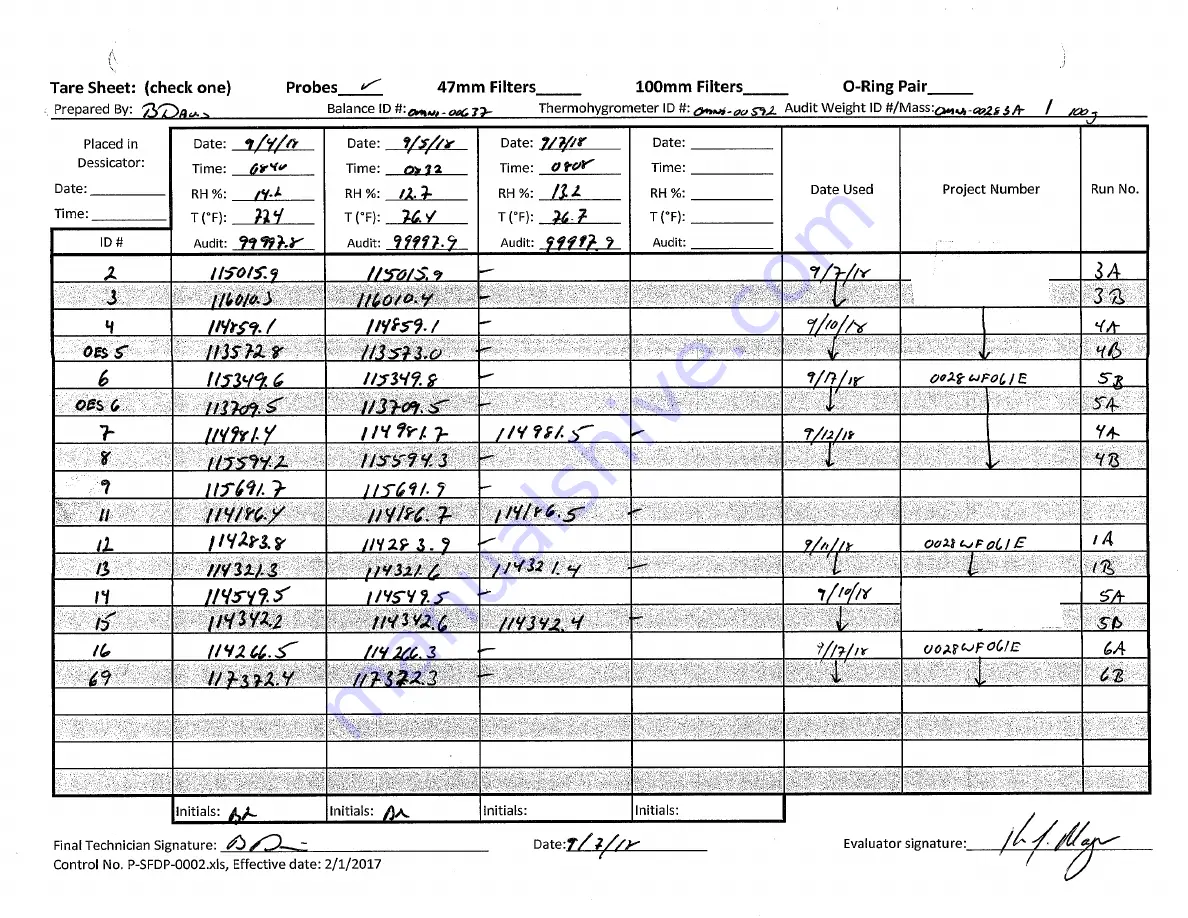 Tare Sheet: (check one) Probes ✓ 47mm Filters 100mm Filters O-Ring Pair
Prepared By: Balance ID #: OMNI-00637 Thermohygrometer ID #: OMNI-00592 Audit Weight ID #/Mass: OMNI-00283A / 100g
Placed in Dessicator: Date: 9/4/18 Date: 9/5/18 Date: 9/7/18 Date: Date Used Project Number Run No.
Time: 0840 Time: 0832 Time: 0808 Time:
Date: RH %: 14.2 RH %: 12.7 RH %: 13.2 RH %:
Time: T (°F): 77.4 T (°F): 76.4 T (°F): 76.7 T (°F):
ID # Audit: 99997.8 Audit: 99997.9 Audit: 99997.9 Audit:
2 115015.9 115015.9 — 9/7/18 3A
3 116010.3 116010.4 — 3B
4 114859.1 114859.1 — 9/10/18 4A
OES 5 113572.8 113573.0 — 4B
6 115349.6 115349.8 — 9/17/18 0028WF061E 5B
OES 6 113709.5 113709.5 — 5A
7 114981.4 114981.7 114981.5 — 9/12/18 4A
8 115594.2 115594.3 — 4B
9 115691.7 115691.9 —
11 114186.4 114186.7 114186.5 —
12 114283.8 114283.9 — 9/11/18 0028WF061E 1A
13 114321.3 114321.6 114321.4 — 1B
14 114549.5 114549.5 — 9/10/18 5A
15 114342.2 114342.6 114342.4 — 5B
16 114266.5 114266.3 — 9/17/18 0028WF061E 6A
69 117372.4 117372.3 — 6B
Initials: Initials: Initials: Initials:
Final Technician Signature: Date: 9/7/18 Evaluator signature:
Control No. P-SFDP-0002.xls, Effective date: 2/1/2017
manualshive.com